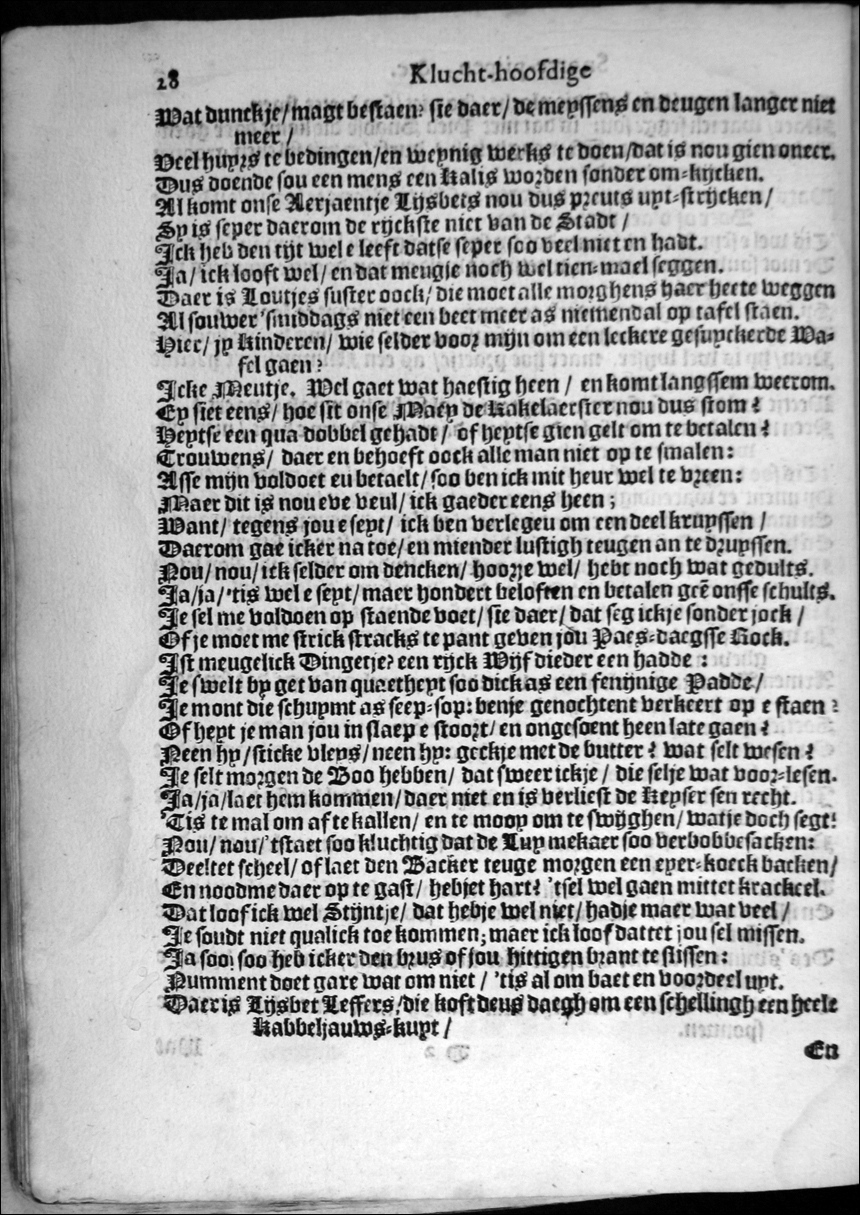 28 Klucht-hoofdige
Wat dunckje/magt bestaen? sie daer/ de meyssens en deugen langer niet
meer /
Veel huyrs te bedingen/en weynig werks te doen/dat is nou gien oneer.
Dus doende sou een mens een Kalis worden sonder om-kijcken.
Al komt onse Aerjaentje Lijsbets nou dus preuts uyt-strijcken/
Sy is seper daerom de rijckste niet van de Stadt /
Ick heb den tijt wel e leeft datse seper soo veel niet en hadt.
Ja/ ick looft wel/ en dat meugje noch wel tien-mael seggen.
Daer is Loutjes suster oock/ die moet alle morghens haer heete weggen
Al souwer 'smiddags niet een beet meer as niemendal op tafel staen.
Hier/ jy Kinderen/ wie selder voor mijn om een leckere gesuyckerde Wa-
fel gaen?
Icke Meutje. Wel gaet wat haestig heen / en komt langssem weerom.
Ey siet eens/ hoe sit onse Maey de Kakelaerster nou dus stom?
Heytse een qua dobbel gehadt/ of heytse gien gelt om te betalen?
Trouwens/ daer en behoeft oock alle man niet op te smalen:
Asse mijn voldoet eu betaelt/ soo ben ick mit heur wel te vreen:
Maer dit is nou eve veul/ ick gaeder eens heen;
Want/ tegens jou e seyt/ ick ben verlegeu om een deel kruyssen /
Daerom gae icker na toe/ en miender lustigh teugen an te druyssen.
Nou/ nou/ ick selder om dencken/ hoorje wel/ hebt noch wat gedults.
Ja/ja/'tis wel e seyt/ maer hondert beloften en betalen geē onsse schults.
Je sel me voldoen op staende voet/ sie daer/ dat seg ickje sonder jock /
Of je moet me strick stracks te pant geven jou Paes-daegsse Rock.
Ist meugelick Dingetje? een rijck Wijf dieder een hadde :
Je swelt by get van quaetheyt soo dick as een fenijnige Padde/
Je mont die schuymt as seep-sop: benje genochtent verkeert op e staen?
Of heyt je man jou in slaep e stoort/ en ongesoent heen late gaen?
Neen hy/sticke vleys/neen hy: geckje met de butter? wat selt wesen?
Je selt morgen de Boo hebben/ dat sweer ickje / die selje wat voor-lesen.
Ja/ja/laet hem kommen/ daer niet en is verliest de Keyser sen recht.
'Tis te mal om af te kallen/ en te mooy om te swijghen/ watje doch segt!
Nou/ nou/ 'tstaet soo kluchtig dat de Luy mekaer soo verbobbesacken:
Deeltet scheel/ of laet den Backer teuge morgen een eyer-koeck backen/
En noodme daer op te gast/ hebjet hart? 'tsel wel gaen mittet krackeel.
Dat loof ick wel Stijntje/ dat hebje wel niet/ hadje maer wat veel /
Je soudt niet qualick toe kommen; maer ick loof dattet jou sel missen.
Ja soo! soo heb icker den brus of jou hittigen brant te slissen:
Numment doet gare wat om niet / 'tis al om baet en voordeel uyt.
Daer is Lijsbet Leffers/die koft deus daegh om een schellingh een heele
Kabbeljauws-kuyt /
En